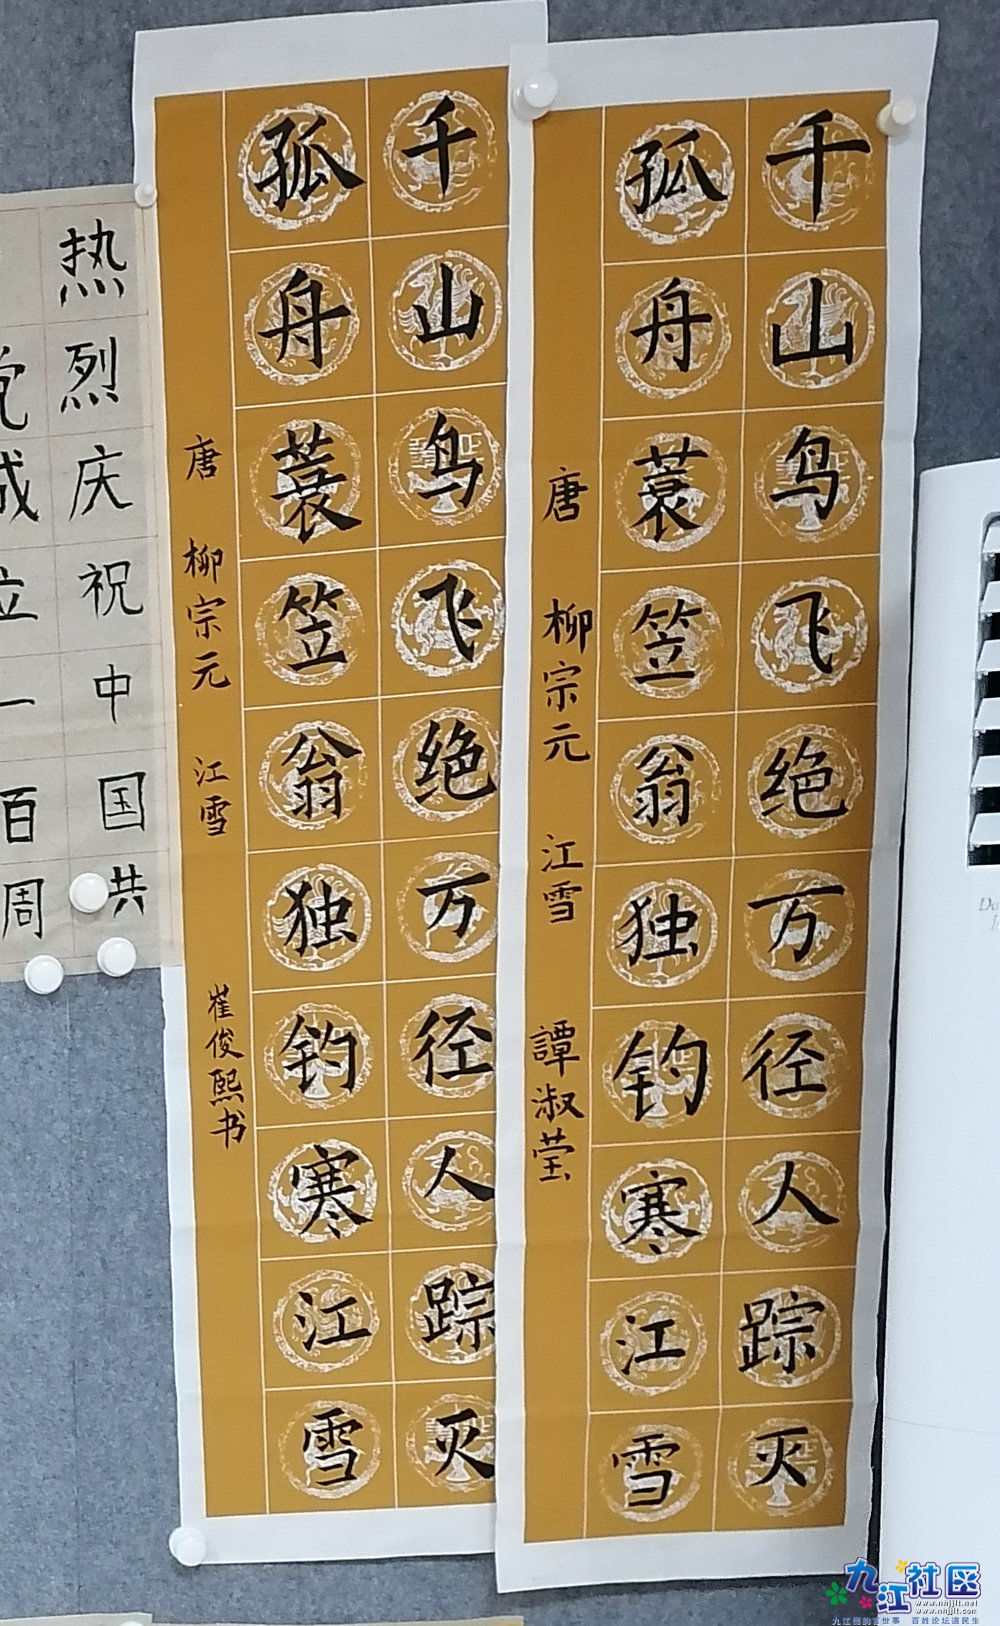 千山鸟飞绝万径人踪灭
孤舟蓑笠翁独钓寒江雪
唐 柳宗元 江雪 譚淑莹
千山鸟飞绝万径人踪灭
孤舟蓑笠翁独钓寒江雪
唐 柳宗元 江雪 崔俊熙书
热烈庆祝中国共
党成立一百周
九江社区
www.nhjjlt.net
www.nhjjlt.com
百姓论坛道民生